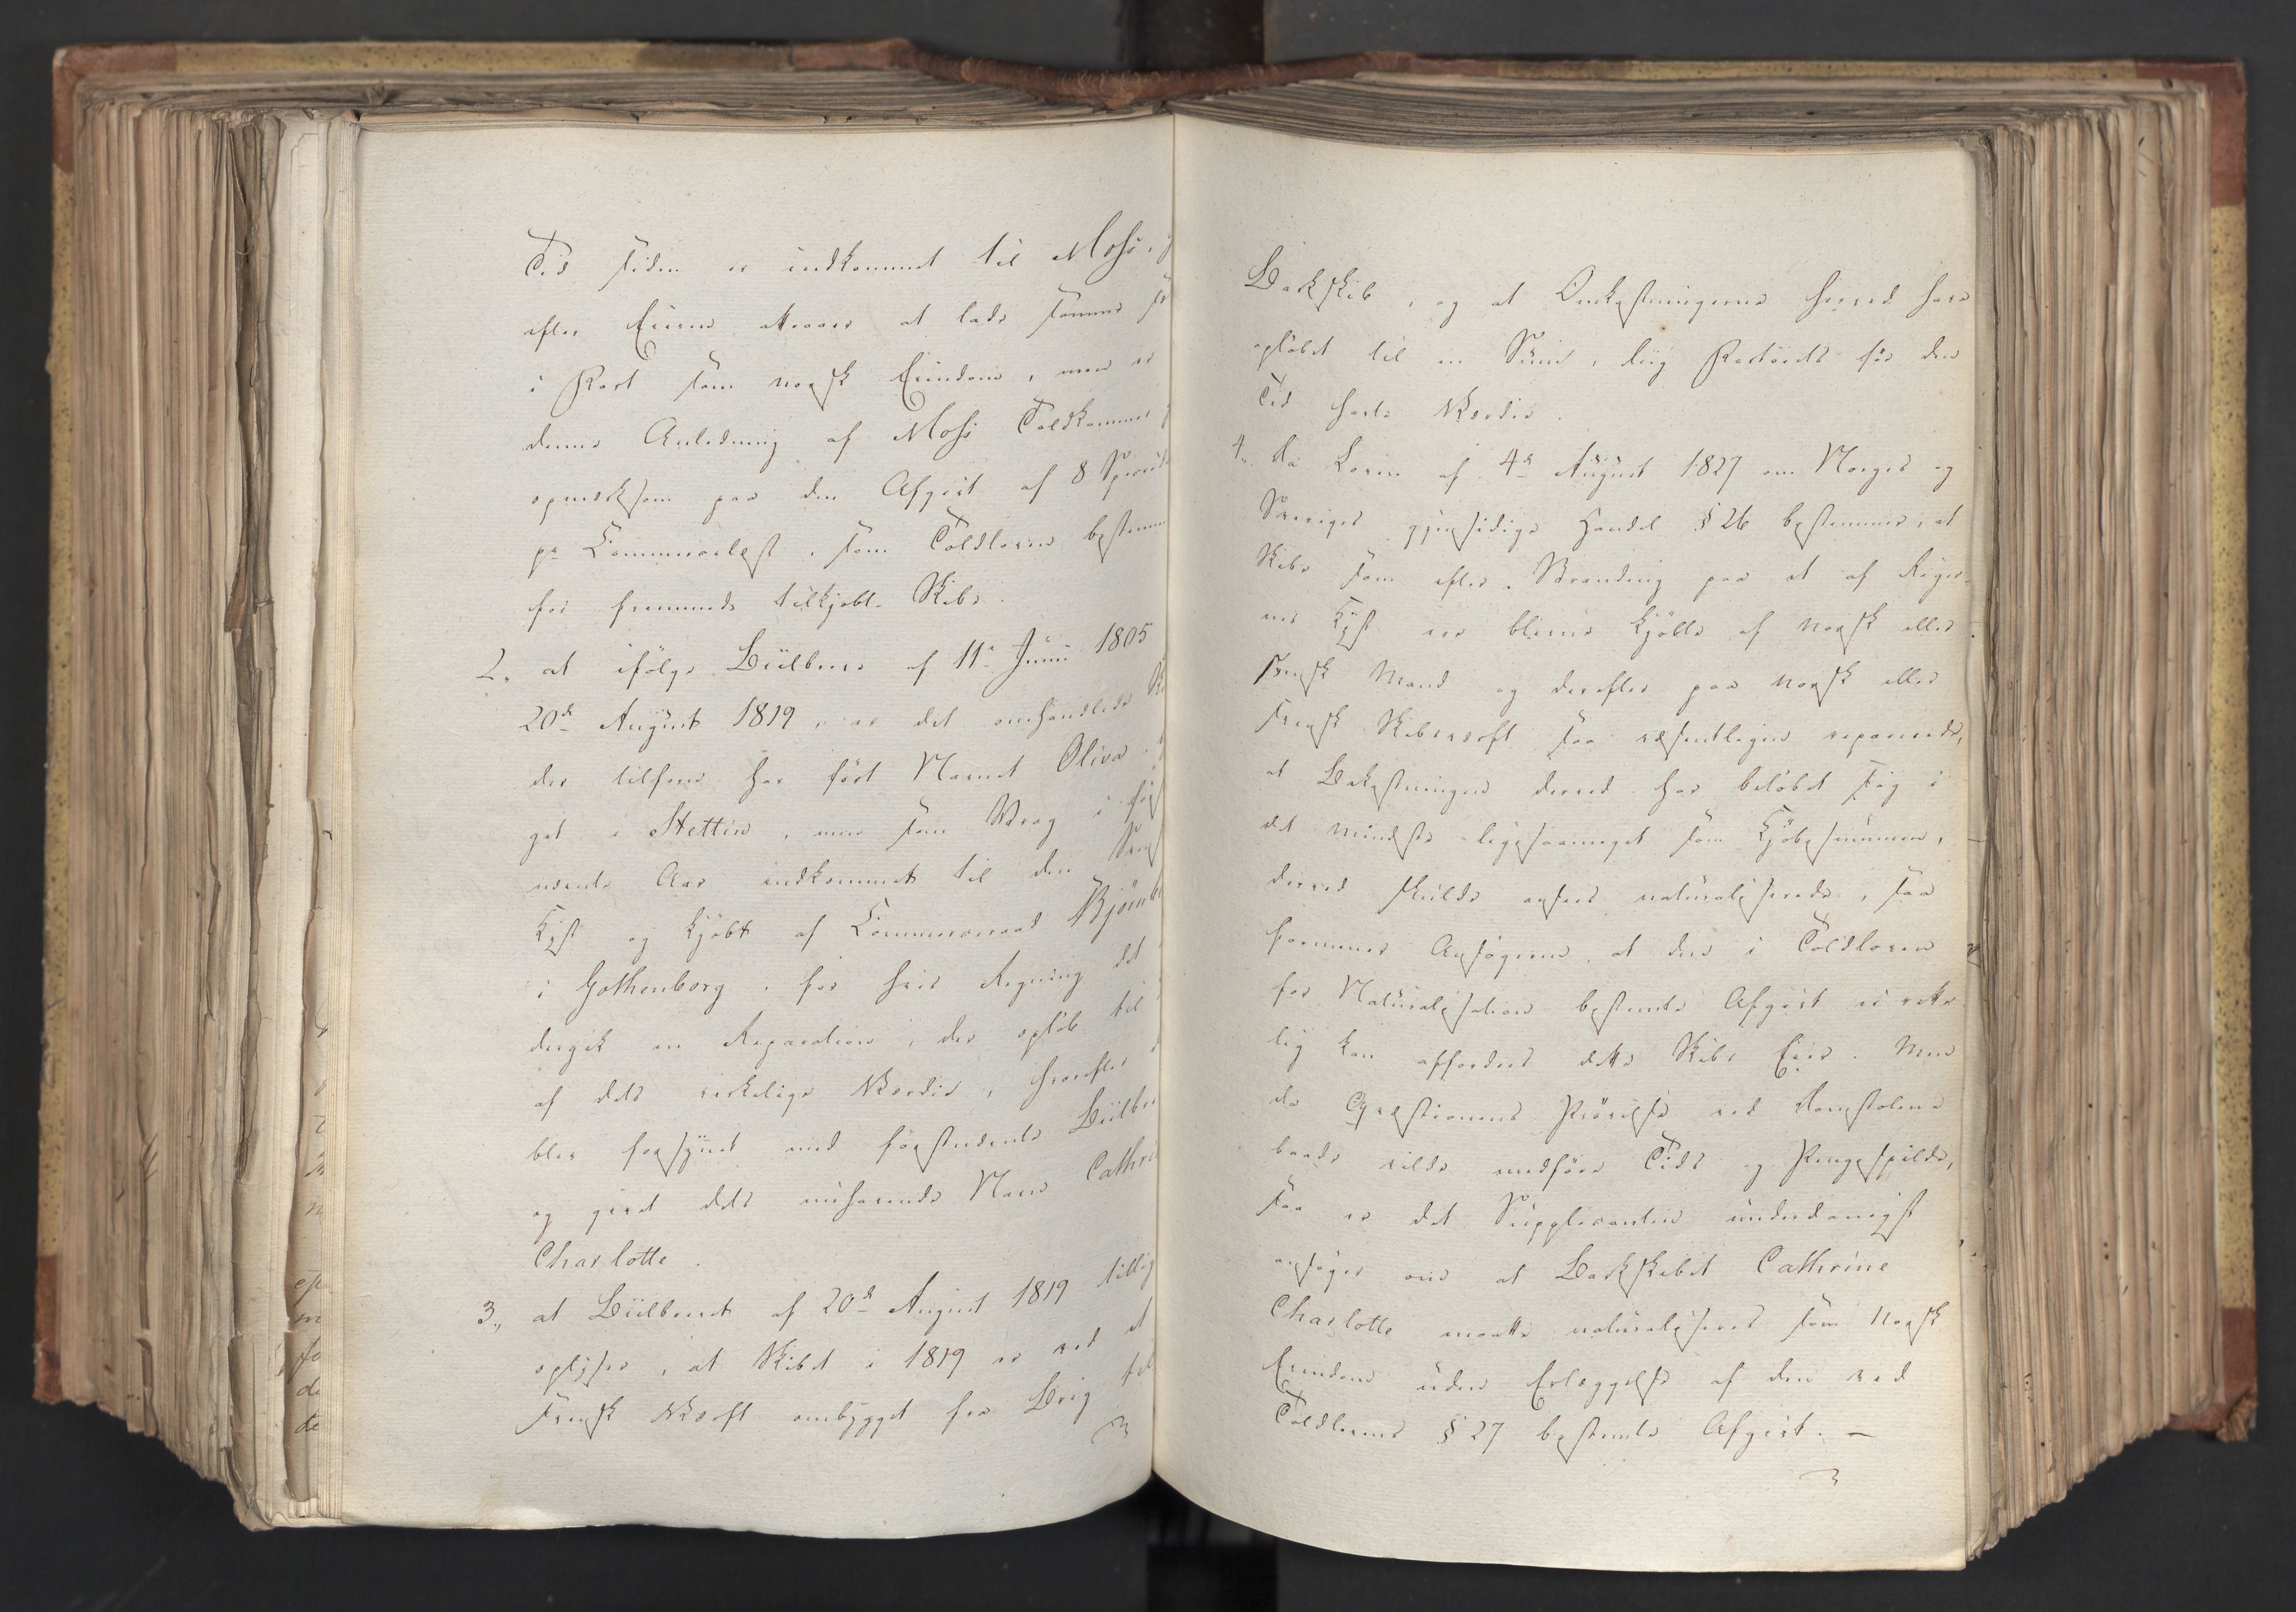 Tid siden er indkommet til Moss,
efter Eieren attraaer at lade samme
i Kart som norsk Eiendom, men er
denne Anledning af Moss Toldkammer
opmærksom paa den Afgivt af 8 Specied
pr Commercelæst, som Toldloven bestemm
for fremmede tilkjøbte Skibe.
2, at ifølge Biilbreve af 11te Junii 1805
20de August 1819, er det omhandlede
der tilforn har ført Navnet Oliva
get i Stettin, men som Vrag i sids
nævnte Aar indkommet til den Svens
Kyst og kjøbt af Commerceraad Bjørnbe
i Gothenborg, for hvis Regning det
dergik en Reparation, der opløb til
af dets virkelige Værdie, hvorefter
blev forsynet med sidstnævnte Biilbr
og givet dets nuhavende Navn Cathri
Charlotte.
3, at Biilbrevet af 20de August 1819 tillig
oplyser, at Skibet i 1819 er ved et
Svensk Værft ombygget fra Brig til
Barkskib, og at Omkostningerne herved have
opløbet til en Sum, liig Fartøiets før den
Tid havte Værdie.
4, da Loven af 4de August 1827 om Norges og
Sverriges gjensidige Handel § 26 bestemmer, at
Skibe som efter Stranding paa et af Riger-
nes Kyst ere blevne kjøbte af norsk eller
svensk Mand og derefter paa norsk eller
svensk Skibsværft saa væsentligen reparerede,
at Bekostningen derved har beløbet sig i
det mindste ligesaameget som Kjøbesummen,
derved skulde ansees naturaliserede, saa
formener Ansøgeren, at den i Toldloven
for Naturalisation bestemte Afgivt ei rette-
lig kan affordres dette Skibs Eier. Men
da Qvæstionens Prøvelse ved Domstolene
baade vilde medføre Tids og Pengespilde,
saa er det Supplicanten underdanigst
ansøger om at Barkskibet Cathrine
Charlotte maatte naturaliseres som norsk
Eiendom uden Erlæggelse af den ved
Toldlovens § 27 bestemte Afgivt. —